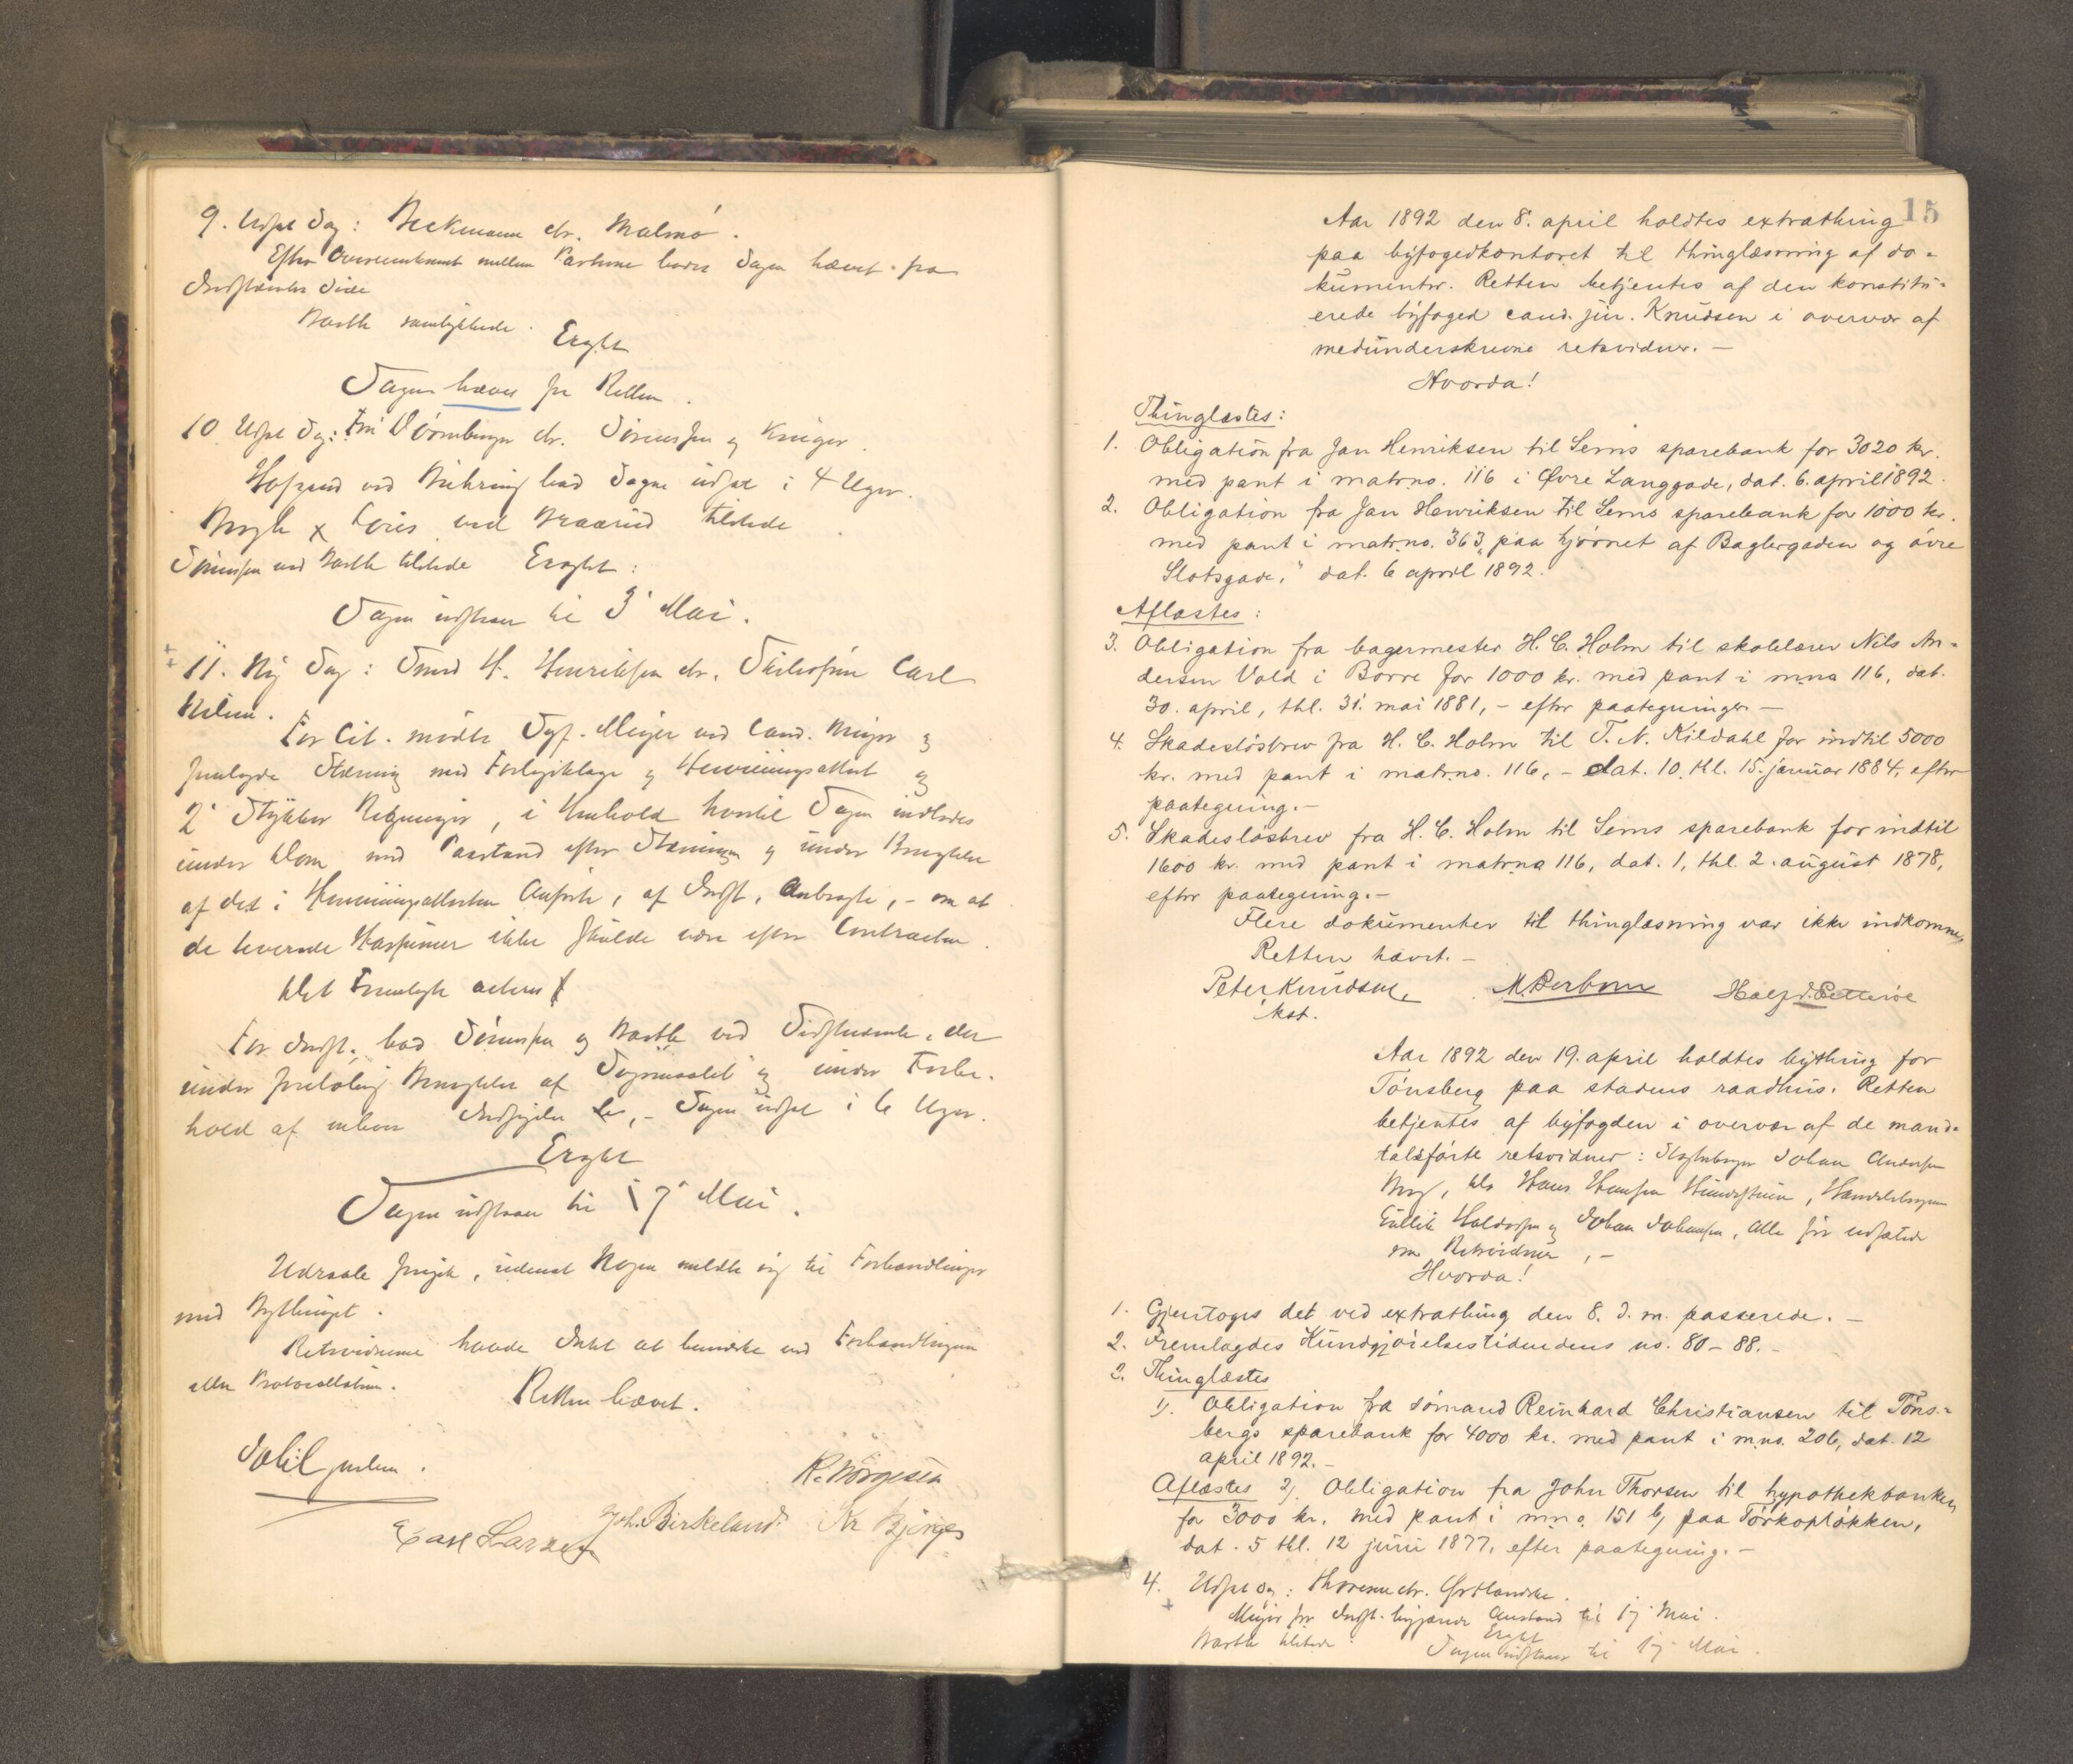 9. Udsat Sag: Beckmann ctr. Malmö.
Efter Overenskomst mellem Parterne bades Sagen hævet fra
Indstævntes Side
Barth samtykkede. Eragtet
Sagen hæves fra Retten.
10. Udsat Sag: Sørensen og Krüger.
ved Bühring bad Sagen udsat i 4 Uger.
ved Braarud tilstede
Sørensen ved Barth tilstede Eragtet:
Sagen udstaar til 3' Mai.
11. Ny Sag: Smed H. Henriksen ctr. Carl
Nilsen.
For Cit. mødte Sagf. Meyer ved Cand. Meyer og
fremlagde Stævning med Forligsklage og Henvisningsattest og
2' Stykker Regninger, i Henhold hvortil Sagen indlodes
under Dom med Paastand efter Stævningen og under Benægtelse
af det i Henvisningsattesten Anførte, af Indst. Anbragte, - om at
de leverede ikke skulde være efter Contracten.
Det Fremlagte acteres
For Indst. bad Sørensen og Barth ved Sidstnævnte, der
under foreløbig Benægtelse af Søgsmaalet og under Forbe-
hold af enhver Indsigelse - Sagen udsat i 6 Uger.
Eragtet
Sagen udstaar til 17' Mai.
Udraab fragik, uden at Nogen meldte sig til Forhandlinger
med Bythinget.
Retsvidnerne havde Intet at bemærke ved Forhandlingen
eller Protocollationen.
Retten hævet.
R. Børgesen
Joh. Birkeland. Kr Bjørges
Carl Larzen
15
Aar 1892 den 8. april holdtes extrathing
paa byfogedkontoret til thinglæsning af do-
kumenter. Retten betjentes af den konstitu-
erede byfoged cand. jur. Knudsen i overvær af
medunderskrevne retsvidner. -
Hvorda!
Thinglæstes:
1. Obligation fra Jan Henriksen til Sems sparebank for 3020 kr.
med pant i matr.no. 116 i Øvre Langgade, dat. 6. april 1892.
2. Obligation fra Jan Henriksen til Sems sparebank for 1000 kr.
med pant i matr.no. 363 „paa hjørnet af Baglergaden og øvre
Slotsgade," dat. 6 april 1892.
Aflæstes:
3. Obligation fra bagermester H. C. Holm til skolelærer Nils An-
dersen Vold i Borre for 1000 kr. med pant i mno 116, dat.
30. april, thl. 31. mai 1881, - efter paategninger. -
4. Skadesløsbrev fra H. C. Holm til T. N. Kildahl for indtil 5000
kr. med pant i matr.no. 116, - dat. 10. thl. 15. januar 1884, efter
paategning. -
5. Skadesløsbrev fra H. C. Holm til Sems sparebank for indtil
1600 kr. med pant i matr.no 116, dat. 1, thl. 2. august 1878,
efter paategning. -
Flere dokumenter til thinglæsning var ikke indkomne,
Retten hævet. -
Peter Knudsen,
kst.
Aar 1892 den 19. april holdtes bything for
Tønsberg paa stadens raadhus. Retten
betjentes af byfogden i overvær af de mand-
talsførte retsvidner: Johan Andersen
Hans Hansen Handelsborger
Gullik Haldorsen og Johan Johansen, alle før edfæstede
som Retsvidner, -
Hvorda!
1. Gjentoges det ved extrathing den 8. d. m. passerede. -
2. Fremlagdes Kundgjørelsestidendens no. 80 - 88. -
2. Thinglæstes
1). Obligation fra sømand Reinhard Christiansen til Tøns-
bergs sparebank for 4000 kr. med pant i mno. 206, dat. 12
april 1892. -
Aflæstes 2). Obligation fra John Thorsen til hypothekbanken
for 3000 kr. med pant i mno. 151 b, paa Tørkopløkken,
dat. 5 thl. 12 juni 1877, efter paategning. -
4. Udsat Sag: ctr.
Meyer for Indst. begjærede Anstand til 17' Mai.
Barth tilstede. Eragtet
Sagen udstaar til 17' Mai.